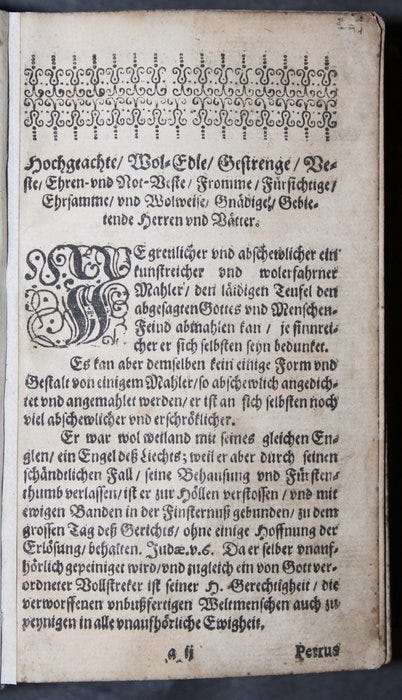 Hochgeachte/ Wol-Edle/ Gestrenge/ Ve-
ste/ Ehren-vnd Not-Veste/ Fromme/ Fürsichtige/
Ehrsamme/ vnd Wolweise/ Gnädige/ Gebie-
tende Herren vnd Vätter.
WE grewlicher vnd abschewlicher ein
kunstreicher vnd wolerfahrner
Mahler/ den läidigen Teufel den
abgesagten Gottes vnd Menschen-
Feind abmahlen kan/ je sinnrei-
cher er sich selbsten seyn bedunket.
Es kan aber demselben kein einige Form vnd
Gestalt von einigem Mahler/ so abschewlich angedich-
tet vnd angemahlet werden/ er ist an sich selbsten noch
viel abschewlicher vnd erschröklicher.
Er war wol weiland mit seines gleichen En-
glen/ ein Engel deß Liechts; weil er aber durch seinen
schändtlichen Fall/ seine Behausung vnd Fürsten-
thumb verlassen/ ist er zur Höllen verstossen/ vnd mit
ewigen Banden in der Finsternuß gebunden/ zu dem
grossen Tag deß Gerichts/ ohne einige Hoffnung der
Erlösung/ behalten. Judæ. v. 6. Da er selber vnauf-
hörlich gepeiniget wird/ vnd zugleich ein von Gott ver-
ordneter Vollstreker ist seiner H. Gerechtigkeit/ die
verworffenen vnbußfertigen Weltmenschen auch zu
peynigen in alle vnaufhörliche Ewigkeit.
a ij Petrus